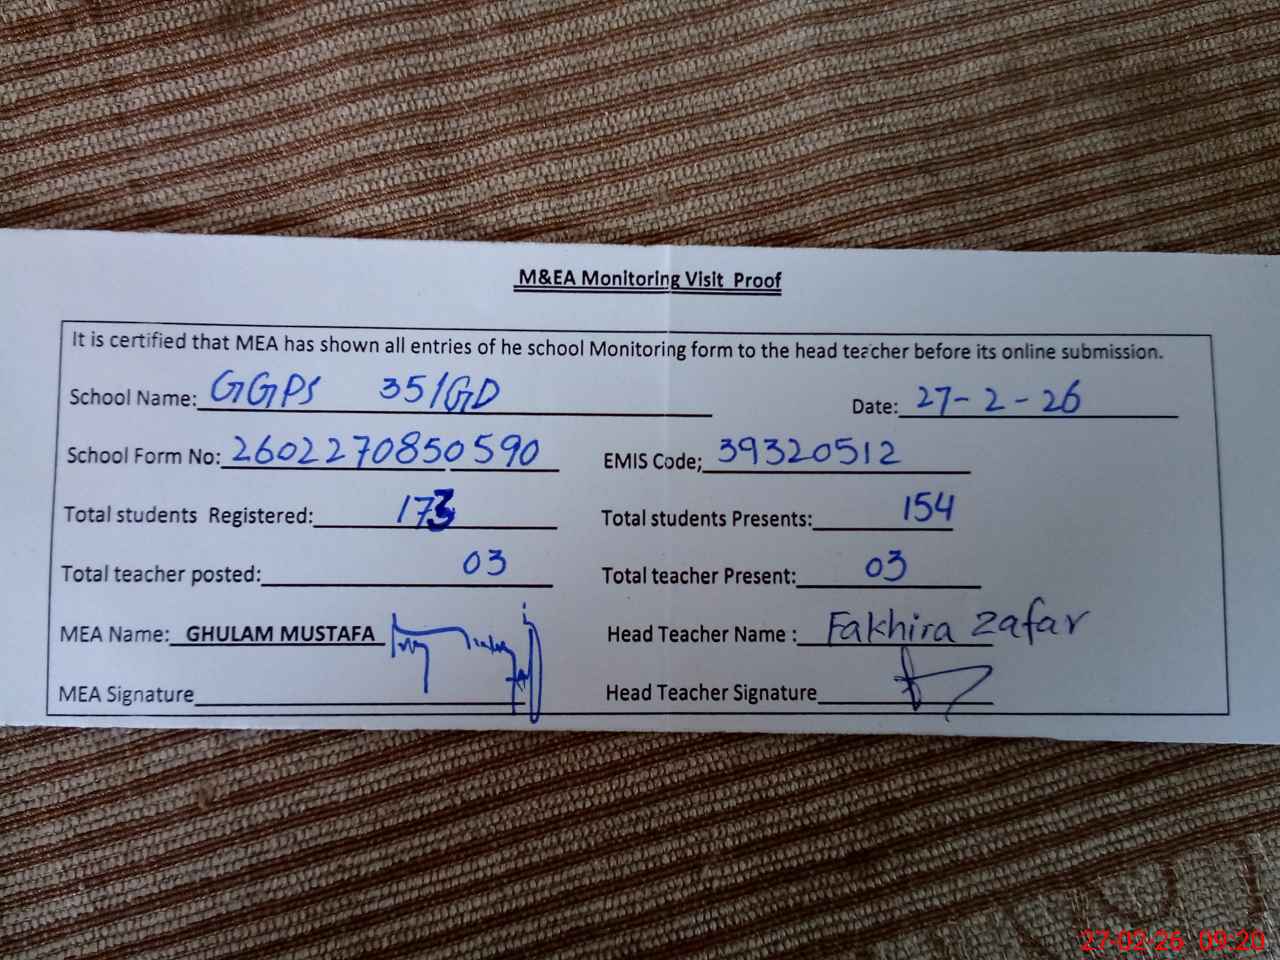 M&EA Monitoring Visit Proof
It is certified that MEA has shown all entries of he school Monitoring form to the head teacher before its online submission.
School Name: GGPS 35/GD Date: 27-2-26
School Form No: 2602270850590 EMIS Code; 39320512
Total students Registered: 173 Total students Presents: 154
Total teacher posted: 03 Total teacher Present: 03
MEA Name: GHULAM MUSTAFA Head Teacher Name : Fakhira Zafar
MEA Signature Head Teacher Signature
27-02-26 09:20